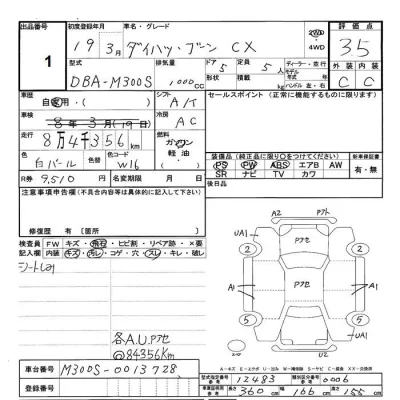 出品番号
1
初度登録年月
19年3月
車名・グレード
ダイハツ・ブーン CX
2WD
4WD
評価点
3.5
型式
DBA-M300S
排気量
1000cc
ドア
5
定員
5人
形状
積載
kg
ディーラー・並行
モデル
年式
ハンドル 左・右
外装
内装
C
C
車歴
自家用・( )
シフト
A/T
車検
8年3月(19日)
冷房
AC
走行
8万4千356km
燃料
ガソリン
軽油
色
白パール
色替
色コード
W16
R券
9,510円
名変期限
月 日
セールスポイント(正常に機能するものに限ります)
装備品(純正品に限り○をつけてください)
PS PW ABS エアB AW
SR ナビ TV カワ
新車保証書
有・無
後日品
注意事項申告欄(不具合内容等は具体的に記入して下さい)
修復歴 有 [箇所 ]
検査員
記入欄
FW キズ・飛石・ヒビ割・リペア跡・×要
内装 キズ・汚レ・コゲ・穴・スレ・キレ・破レ
シートしめり
各A.U.Pアセ
@84356Km
A2
Pアト
UA1
Pアセ
2
2
A1
A1
Pアセ
5
5
UA1
U2
車台番号
M300S-0013728
登録番号
A…キズ E…エクボ U…凹ミ W…補修跡 S…サビ C…腐食 XX…交換済
型式指定番号
参考
12483
類別区分番号
参考
0006
車両諸元
参考
長さ
360cm
幅
166cm
高さ
155cm